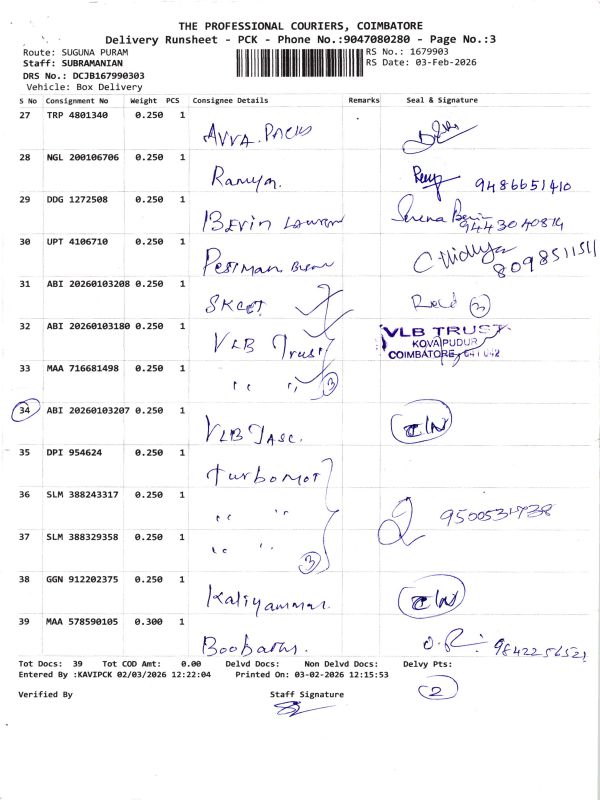 THE PROFESSIONAL COURIERS, COIMBATORE
Delivery Runsheet - PCK - Phone No.:9047080280 - Page No.:3
Route: SUGUNA PURAM
RS No.: 1679903
Staff: SUBRAMANIAN
RS Date: 03-Feb-2026
DRS No.: DCJB167990303
Vehicle: Box Delivery
S No Consignment No Weight PCS Consignee Details Remarks Seal & Signature
27 TRP 4801340 0.250 1 AVVA. Packs
28 NGL 200106706 0.250 1 Ramya. 9486651410
29 DDG 1272508 0.250 1 BEVIN 9443040814
30 UPT 4106710 0.250 1 C Vidhya 8098511511
31 ABI 20260103208 0.250 1 SKCET. 3
32 ABI 20260103180 0.250 1 VLB Trust VLB TRUST
KOVAIPUDUR
COIMBATORE - 641 042
33 MAA 716681498 0.250 1 " " 3
34 ABI 20260103207 0.250 1 VLB Jasc.
35 DPI 954624 0.250 1 turbomot
36 SLM 388243317 0.250 1 " " 9500531738
37 SLM 388329358 0.250 1 " " 3
38 GGN 912202375 0.250 1 Kaliyammal.
39 MAA 578590105 0.300 1 Boobathi.
Tot Docs: 39 Tot COD Amt: 0.00 Delvd Docs: Non Delvd Docs: Delvy Pts:
Entered By :KAVIPCK 02/03/2026 12:22:04 Printed On: 03-02-2026 12:15:53
2
Verified By Staff Signature